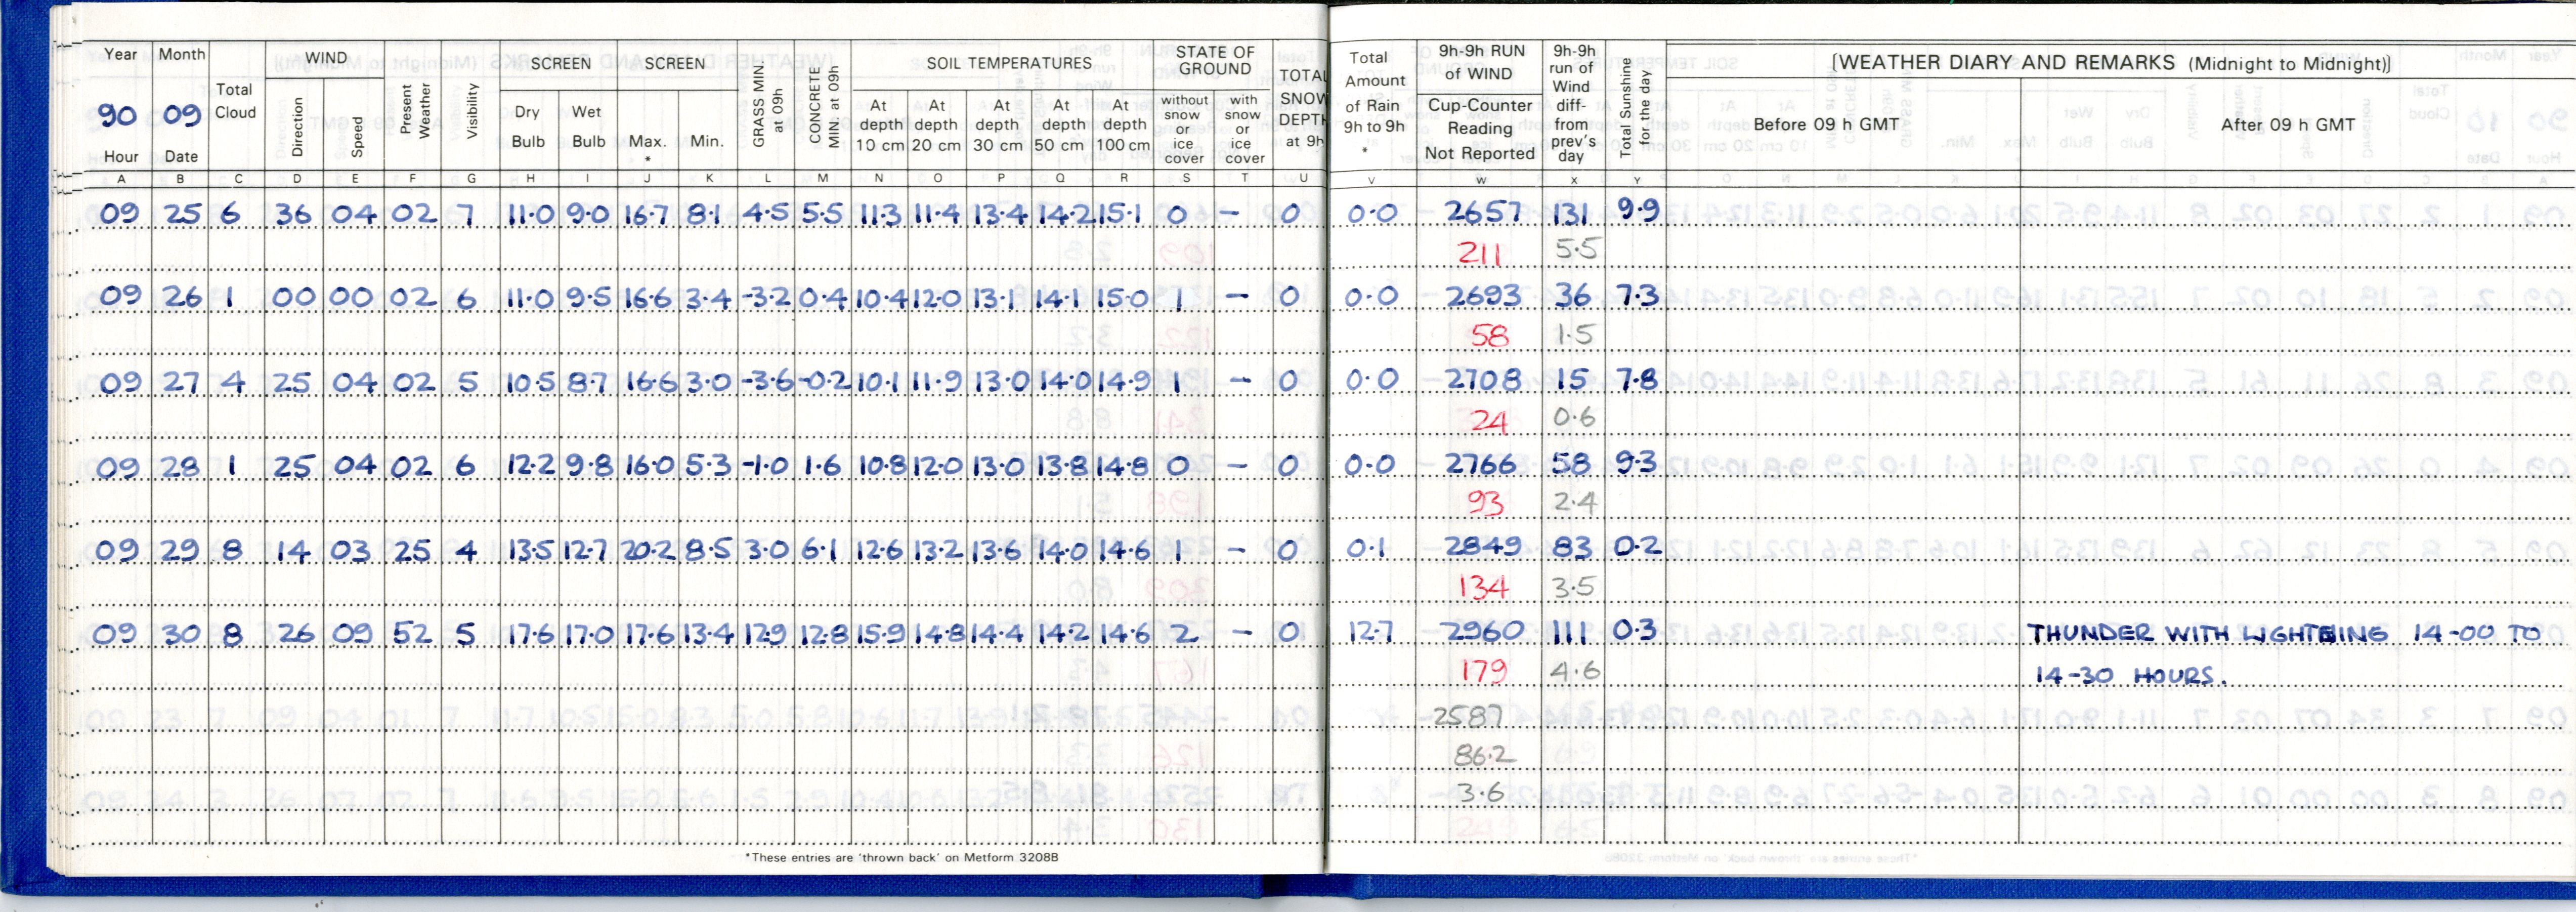 Year Month WIND SCREEN SCREEN SOIL TEMPERATURES STATE OF GROUND
90 09
Hour Date Total Cloud Direction Speed Present Weather Visibility Dry Bulb Wet Bulb Max. * Min. GRASS MIN at 09h CONCRETE MIN at 09h At depth 10 cm At depth 20 cm At depth 30 cm At depth 50 cm At depth 100 cm without snow or ice cover with snow or ice cover TOTAL SNOW DEPTH at 9h Total Amount of Rain 9h to 9h * 9h-9h RUN of WIND Cup-Counter Reading Not Reported 9h-9h run of Wind diff- from prev's day Total Sunshine for the day
[WEATHER DIARY AND REMARKS (Midnight to Midnight)]
Before 09 h GMT After 09 h GMT
A B C D E F G H I J K L M N O P Q R S T U V W X Y
09 25 6 36 04 02 7 11·0 9·0 16·7 8·1 4·5 5·5 11·3 11·4 13·4 14·2 15·1 0 – 0 0·0 2657 131 9·9
211 5·5
09 26 1 00 00 02 6 11·0 9·5 16·6 3·4 -3·2 0·4 10·4 12·0 13·1 14·1 15·0 1 – 0 0·0 2693 36 7·3
58 1·5
09 27 4 25 04 02 5 10·5 8·7 16·6 3·0 -3·6 -0·2 10·1 11·9 13·0 14·0 14·9 1 – 0 0·0 2708 15 7·8
24 0·6
09 28 1 25 04 02 6 12·2 9·8 16·0 5·3 -1·0 1·6 10·8 12·0 13·0 13·8 14·8 0 – 0 0·0 2766 58 9·3
93 2·4
09 29 8 14 03 25 4 13·5 12·7 20·2 8·5 3·0 6·1 12·6 13·2 13·6 14·0 14·6 1 – 0 0·1 2849 83 0·2
134 3·5
09 30 8 26 09 52 5 17·6 17·0 17·6 13·4 12·9 12·8 15·9 14·8 14·4 14·2 14·6 2 – 0 12·7 2960 111 0·3 THUNDER WITH LIGHTNING 14-00 TO
179 4·6 14-30 HOURS.
2587
86·2
3·6
*These entries are 'thrown back' on Metform 3208B